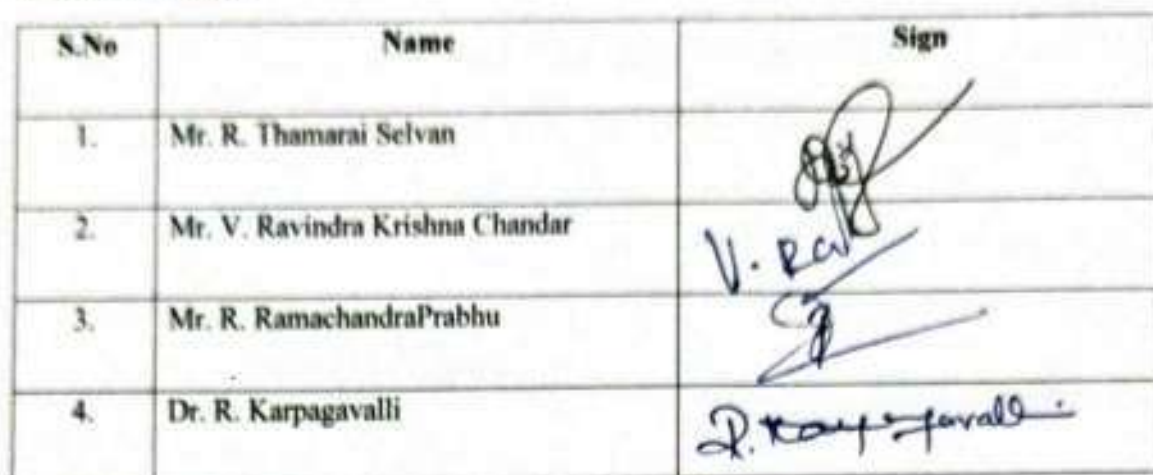 S.No Name Sign
1. Mr. R. Thamarai Selvan
2. Mr. V. Ravindra Krishna Chandar
V. Ra
3. Mr. R. RamachandraPrabhu
4. Dr. R. Karpagavalli R. Karpagavalli